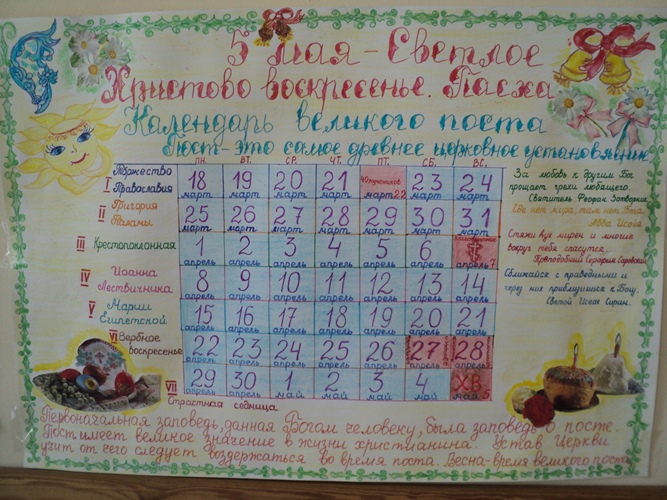 5 мая - Светлое
Христово воскресенье. Пасха
Календарь великого поста
Пост - это самое древнее церковное установление
ПН. ВТ. СР. ЧТ. ПТ. СБ. ВС.
I Торжество Православия
18 март 19 март 20 март 21 март март 22 23 март 24 март
II Григория Паламы
25 март 26 март 27 март 28 март 29 март 30 март 31 март
III Крестопоклонная
1 апрель 2 апрель 3 апрель 4 апрель 5 апрель 6 апрель апрель 7
IV Иоанна Лествичника
8 апрель 9 апрель 10 апрель 11 апрель 12 апрель 13 апрель 14 апрель
V Марии Египетской
15 апрель 16 апрель 17 апрель 18 апрель 19 апрель 20 апрель 21 апрель
VI Вербное воскресенье
22 апрель 23 апрель 24 апрель 25 апрель 26 апрель 27 апрель 28 апрель
VII
29 апрель 30 апрель 1 май 2 май 3 май 4 май ХВ май 5
Страстная седмица
За любовь к другим Бог
прощает грехи любящего.
Святитель Феофан Затворник
Где нет мира, там нет Бога
Авва Исайя
Стяжи дух мирен и многие
вокруг тебя спасутся
Преподобный Серафим Саровский
Сближайся с праведными и
через них приблизишься к Богу.
Святой Исаак Сирин.
Первоначальная заповедь, данная Богом человеку, была заповедь о посте.
Пост имеет великое значение в жизни христианина. Устав Церкви
учит от чего следует воздержаться во время поста. Весна - время великого поста